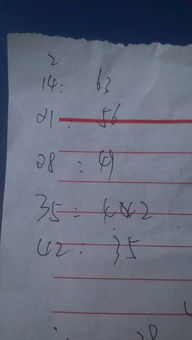 2
14: 63
21: 56
28: 49
35: 42
42: 35
28